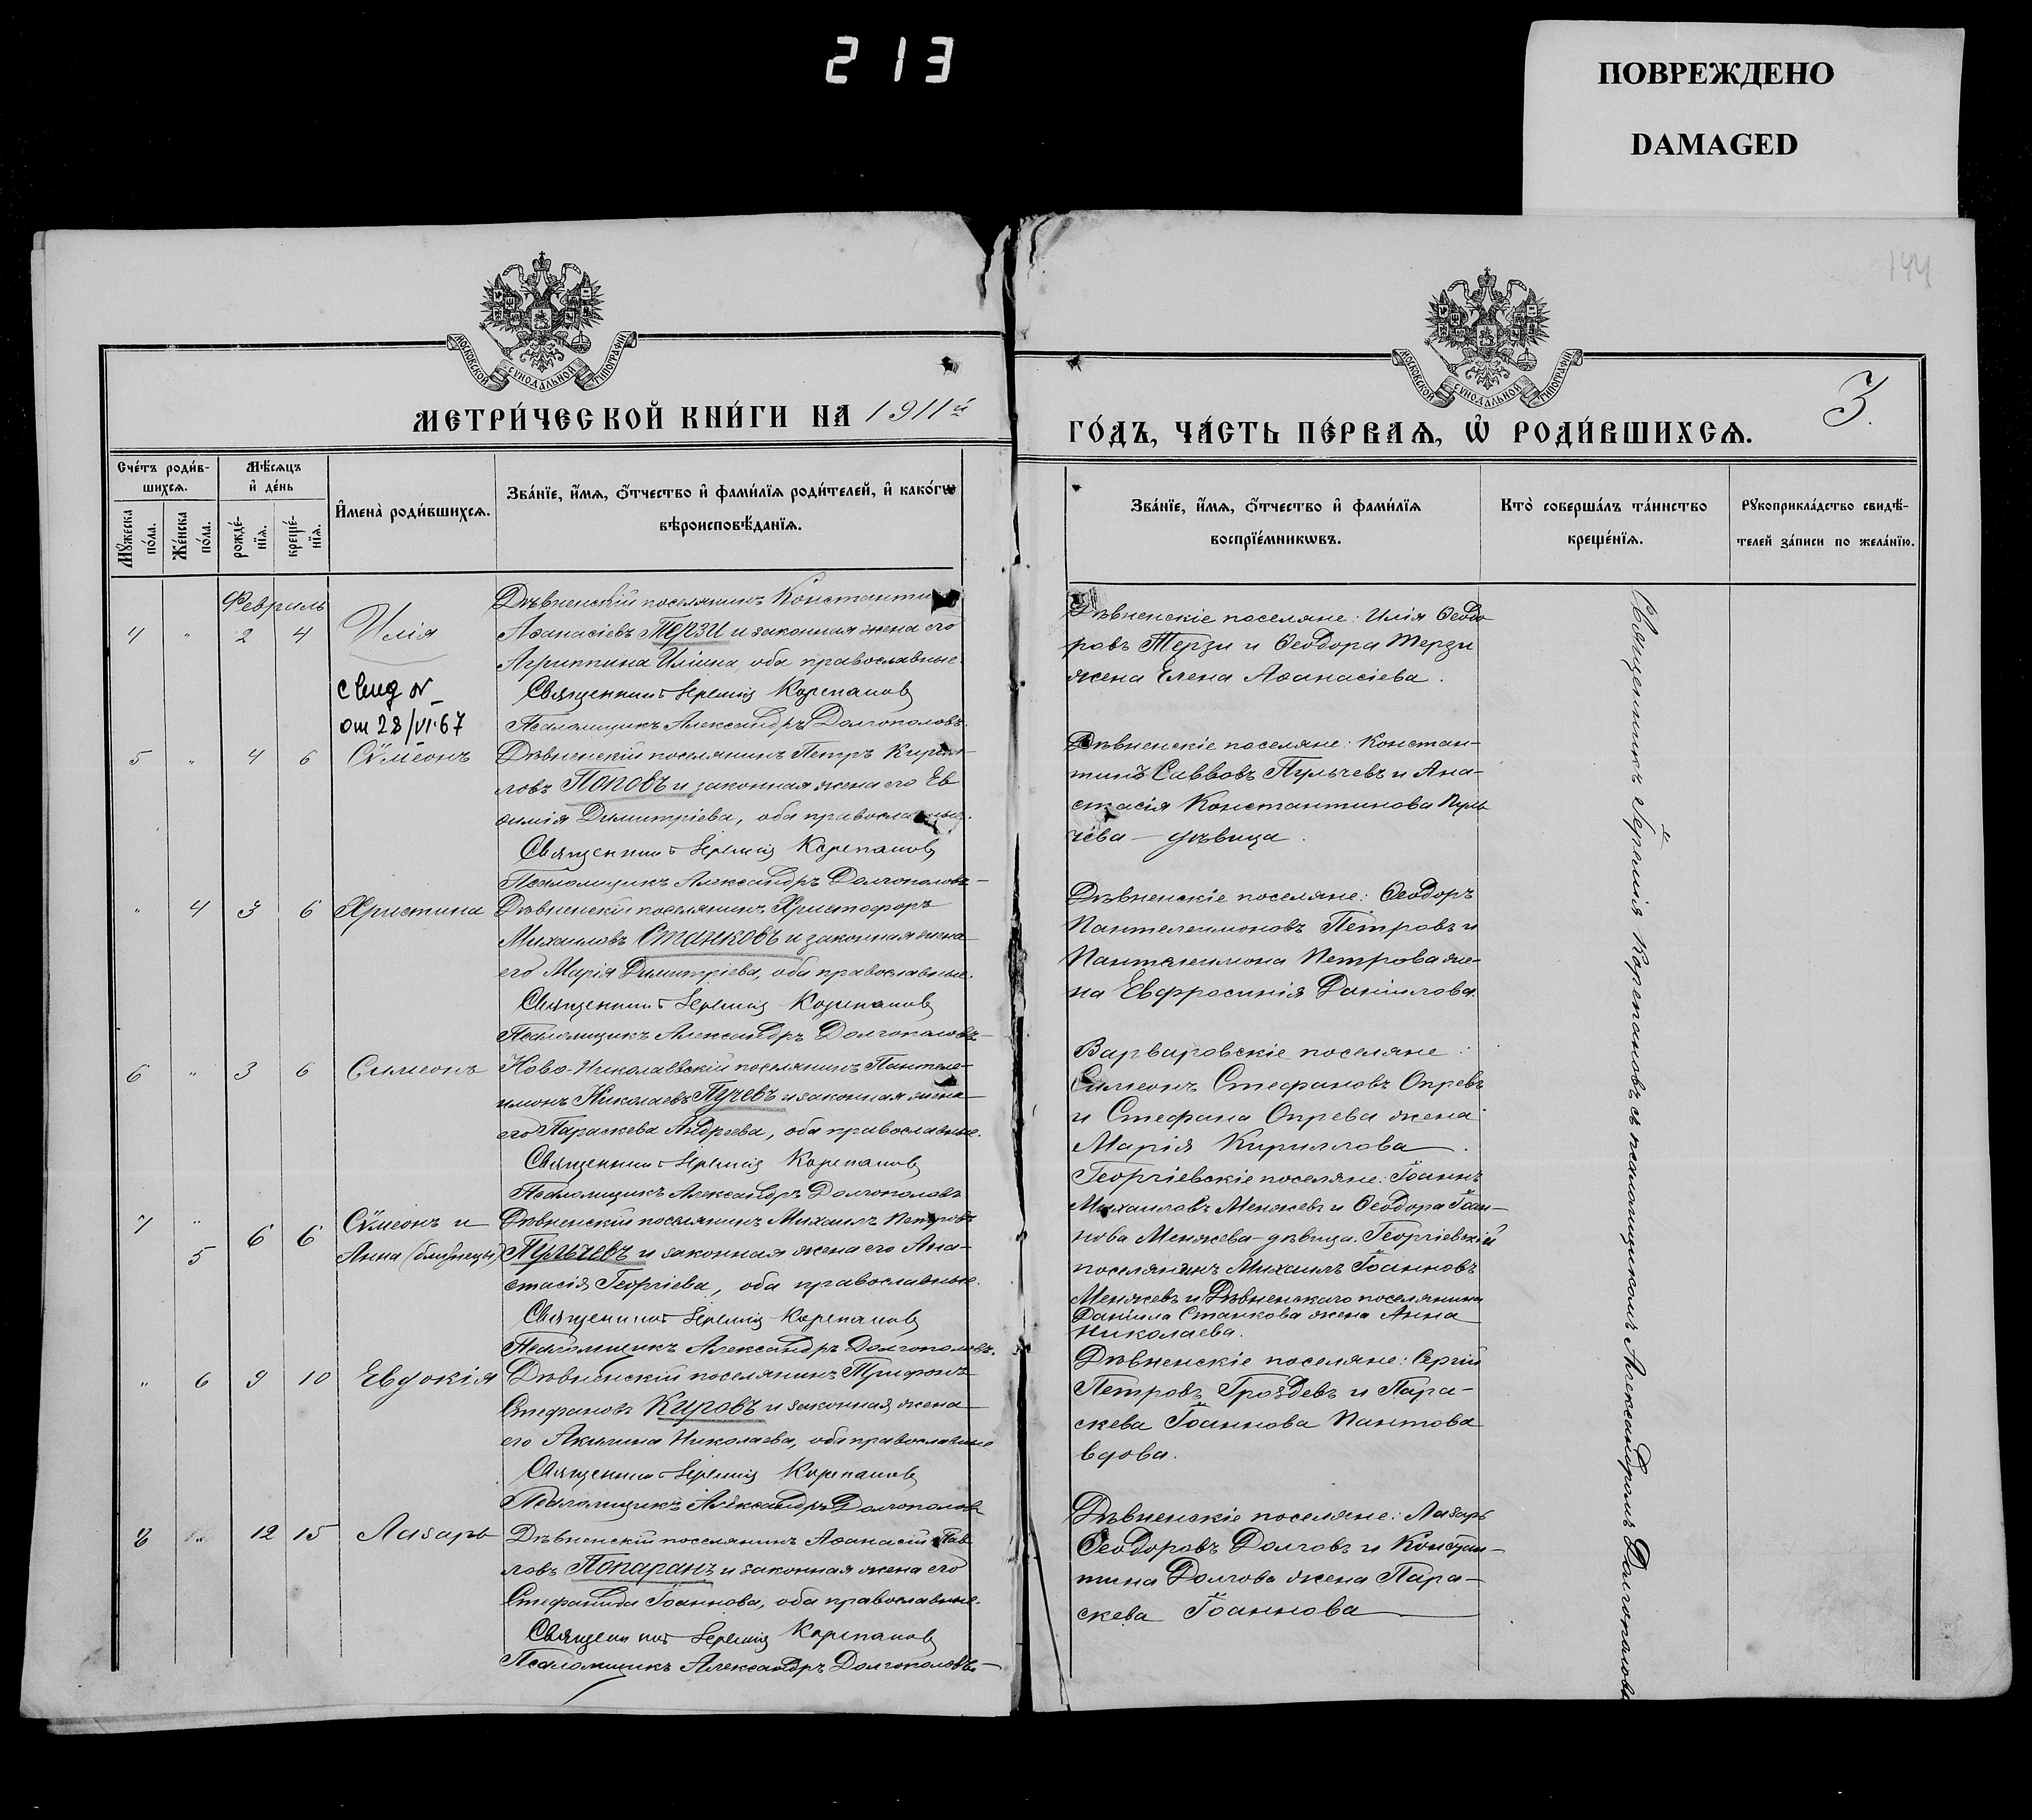 213
ПОВРЕЖДЕНО
DAMAGED
144
МОСКОВСКОЙ СѴНОДАЛЬНОЙ ТИПОГРАФІИ
МЕТРИ́ЧЕСКОЙ КНИ́ГИ НА 1911й
Сче́тъ роди́в-
шихсѧ.
Мѣ́сѧцъ
и҆ де́нь
Мꙋ́жеска
по́ла.
Же́нска
по́ла.
рожде́-
нїѧ.
креще́-
нїѧ.
И҆мена̀ роди́вшихсѧ.
Зва́нїе, и҆́мѧ, ѻ҆́тчество и҆ фами́лїѧ роди́телей, и҆ како́гѡ
вѣроисповѣ́данїѧ.
Февраль
4 " 2 4 Илія
Дѣвненскій поселянинъ Константи
Аѳанасіевъ Терзи и законная жена его
Агриппина Иліина, оба православные.
Священникъ Іеремія Корепановъ
Псаломщикъ Александръ Долгополовъ.
свид №
от 28/VI·67
5 " 4 6 Сѵмеонъ
Дѣвненскій поселянинъ Петръ Кирил-
ловъ Поповъ и законная жена его Ев
ѳимія Димитріева, оба православные.
Священникъ Іеремія Корепановъ
Псаломщикъ Александръ Долгополовъ
" 4 3 6 Христина
Дѣвненскій поселянинъ Христофоръ
Михаиловъ Станковъ и законная жена
его Марія Димитріева, оба православные.
Священникъ Іеремія Корепановъ
Псаломщикъ Александръ Долгополовъ
6 " 3 6 Симеонъ
Ново-Николаевскій поселянинъ Пантеле-
имонъ Николаевъ Пучевъ и законная жена
его Параскева Андреева, оба православные.
Священникъ Іеремія Корепановъ
Псаломщикъ Александръ Долгополовъ
7 " 6 6 Сѵмеонъ и
5 Анна (близнецы)
Дѣвненскій поселянинъ Михаилъ Петровъ
Пульчевъ и законная жена его Ана-
стасія Георгіева, оба православные.
Священникъ Іеремія Корепановъ
Псаломщикъ Александръ Долгополовъ.
" 6 9 10 Евдокія
Дѣвненскій поселянинъ Трифонъ
Стефановъ Кировъ и законная жена
его Акилина Николаева, оба православные
Священникъ Іеремія Корепановъ
Псаломщикъ Александръ Долгополовъ
8 12 15 Лазарь
Дѣвненскій поселянинъ Аѳанасій Пав
ловъ Попаранъ и законная жена его
Стефанида Іоаннова, оба православные.
Священникъ Іеремія Корепановъ
Псаломщикъ Александръ Долгополовъ
МОСКОВСКОЙ СѴНОДАЛЬНОЙ ТИПОГРАФІИ
3.
ГО́ДЪ, ЧА́СТЬ ПЕ́РВАѦ, Ѡ҆ РОДИ́ВШИХСѦ.
Зва́нїе, и҆́мѧ, ѻ҆́тчество и҆ фами́лїѧ
воспрїе́мникѡвъ.
Кто̀ соверша́лъ та́инство
креще́нїѧ.
Рꙋкоприкла́дство свидѣ́-
телей за́писи по жела́нїю.
Дѣвненскіе поселяне: Илія Ѳеодо
ровъ Терзи и Ѳеодора Терзи
жена Елена Аѳанасіева.
Дѣвненскіе поселяне: Констан-
тинъ Саввовъ Пульчевъ и Ана-
стасія Константинова Пуль
чева - дѣвица.
Дѣвненскіе поселяне: Ѳеодоръ
Пантелеимоновъ Петровъ и
Пантелеимона Петрова же-
на Евфросинія Даніилова.
Варваровскіе поселяне:
Симеонъ Стефановъ Опревъ
и Стефана Опрева жена
Марія Кириллова.
Георгіевскіе поселяне: Іоаннъ
Михаиловъ Менжевъ и Ѳеодора Іоан-
нова Менжева - дѣвица. Георгіевскій
поселянинъ Михаилъ Іоанновъ
Менжевъ и Дѣвненскаго поселянина
Даніила Станкова жена Анна
Николаева.
Дѣвненскіе поселяне: Сергій
Петровъ Гроздевъ и Пара-
скева Іоаннова Пантова
вдова.
Дѣвненскіе поселяне: Лазарь
Ѳеодоровъ Долговъ и Констан-
тина Долгова жена Пара-
скева Іоаннова
Священникъ Іеремія Корепановъ съ псаломщикомъ Александромъ Долгополовымъ